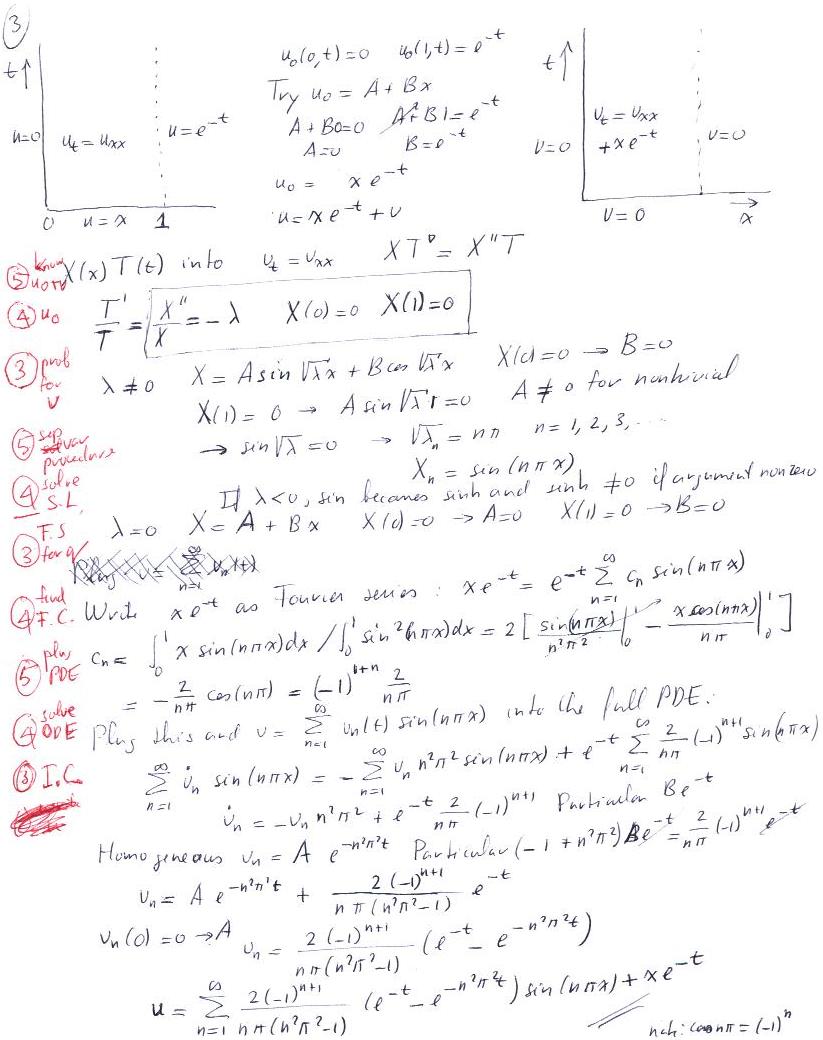 3
t↑
u=0
u_t = u_xx
u = e^-t
0 u = x 1
u_0(0,t)=0 u_0(1,t) = e^-t
Try u_0 = A + Bx
A + B0=0 A + B1 = e^-t
A=0 B=e^-t
u_0 = x e^-t
u = x e^-t + v
t↑
v=0
v_t = v_xx
+xe^-t
v=0
v = 0
x
X(x)T(t) into v_t = v_xx XT' = X''T
4 u_0
T'/T = X''/X = -λ X(0)=0 X(1)=0
3 prob for v
λ ≠ 0 X = A sin √λ x + B cos √λ x X(0)=0 → B=0
X(1) = 0 → A sin √λ 1 = 0 A ≠ 0 for nontrivial
5 sep var procedure
→ sin √λ = 0 → √λ_n = nπ n = 1, 2, 3, ...
X_n = sin (nπx)
4 solve S.L.
If λ<0, sin becomes sinh and sinh ≠0 if argument nonzero
λ=0 X = A + Bx X(0)=0 → A=0 X(1)=0 → B=0
3 F.S for q
4 find F.C.
Write xe^-t as Fourier series: xe^-t = e^-t ∑_{n=1}^∞ c_n sin(nπx)
c_n = ∫_0^1 x sin(nπx)dx / ∫_0^1 sin²(nπx)dx = 2 [ sin(nπx)/n²π² |_0^1 - x cos(nπx)/nπ |_0^1 ]
5 plug PDE
= - 2/nπ cos(nπ) = (-1)^{1+n} 2/nπ
4 solve ODE
Plug this and v = ∑_{n=1}^∞ v_n(t) sin(nπx) into the full PDE:
3 I.C.
∑_{n=1}^∞ v̇_n sin(nπx) = - ∑_{n=1}^∞ v_n n²π² sin(nπx) + e^-t ∑_{n=1}^∞ 2/nπ (-1)^{n+1} sin(nπx)
v̇_n = -v_n n²π² + e^-t 2/nπ (-1)^{n+1} Particular Be^-t
Homogeneous v_n = A e^{-n²π²t} Particular (-1 + n²π²) Be^-t = 2/nπ (-1)^{n+1} e^-t
v_n = A e^{-n²π²t} + 2(-1)^{n+1}/nπ(n²π²-1) e^-t
v_n(0) = 0 → A v_n = 2(-1)^{n+1}/nπ(n²π²-1) (e^-t - e^{-n²π²t})
u = ∑_{n=1}^∞ 2(-1)^{n+1}/nπ(n²π²-1) (e^-t - e^{-n²π²t}) sin(nπx) + xe^-t
cos nπ = (-1)^n